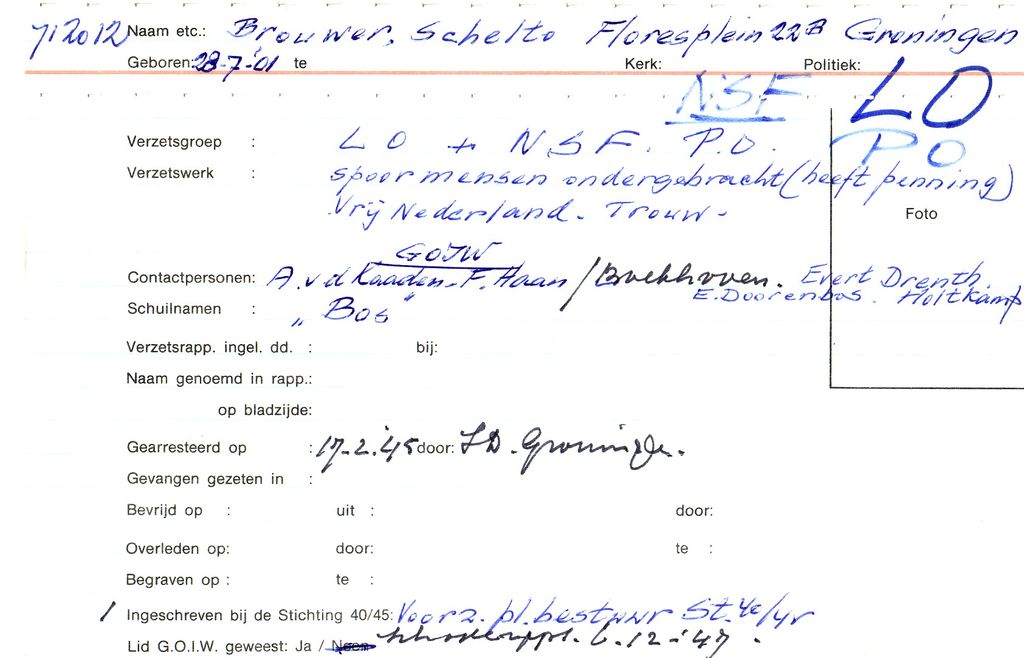 7/2012 Naam etc.: Brouwer, Schelto Floresplein 22B Groningen
Geboren: 28-7-'01 te Kerk: Politiek:
NSF LO
PO
Verzetsgroep : LO + NSF. P.O.
Verzetswerk : spoormensen ondergebracht (heeft penning)
Vrij Nederland - Trouw -
Foto
GOIW
Contactpersonen: A. v. d Kaaden - F. Haan / Boekhoven. Evert Drenth.
E. Doorenbos. Holtkamp
Schuilnamen : „ Bos "
Verzetsrapp. ingel. dd. : bij:
Naam genoemd in rapp.:
op bladzijde:
Gearresteerd op : 17-2-'45 door: SD. Groningen.
Gevangen gezeten in :
Bevrijd op : uit : door:
Overleden op: door: te :
Begraven op : te :
/ Ingeschreven bij de Stichting 40/45: Voorz. pl. bestuur St. 40/45
Lid G.O.I.W. geweest: Ja / Neen 6.12-'47.